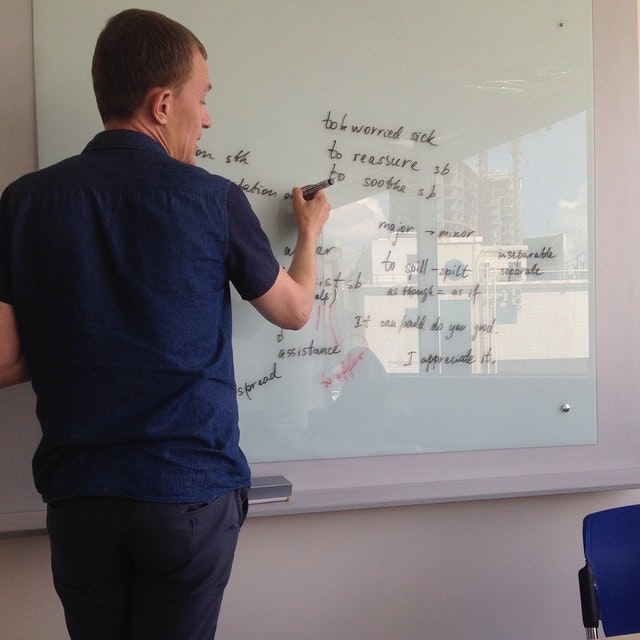 on sth
tation
assistance
spread
to be worried sick
to reassure sb
to soothe sb
major - minor
to spill - spilt
as though = as if
It can/could do you good
I appreciate it.
inseparable
separate
to offer